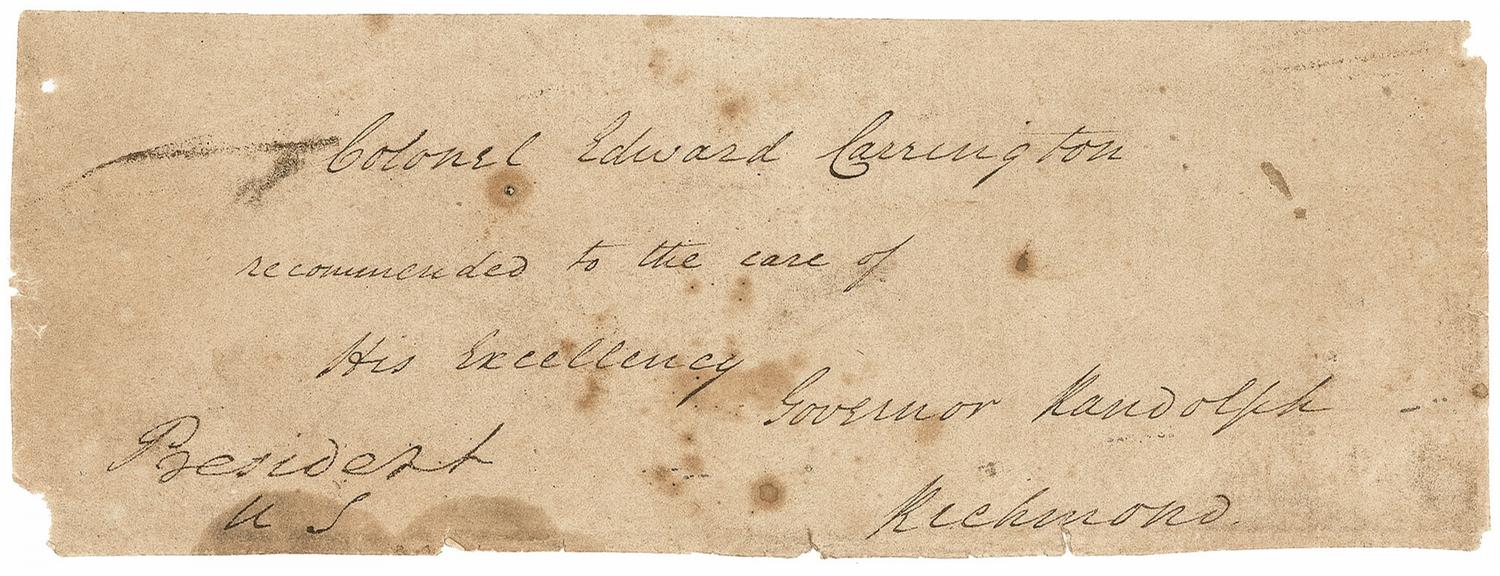 Colonel Edward Carrington
recommended to the care of
His Excellency
Governor Randolph
President
U S
Richmond.